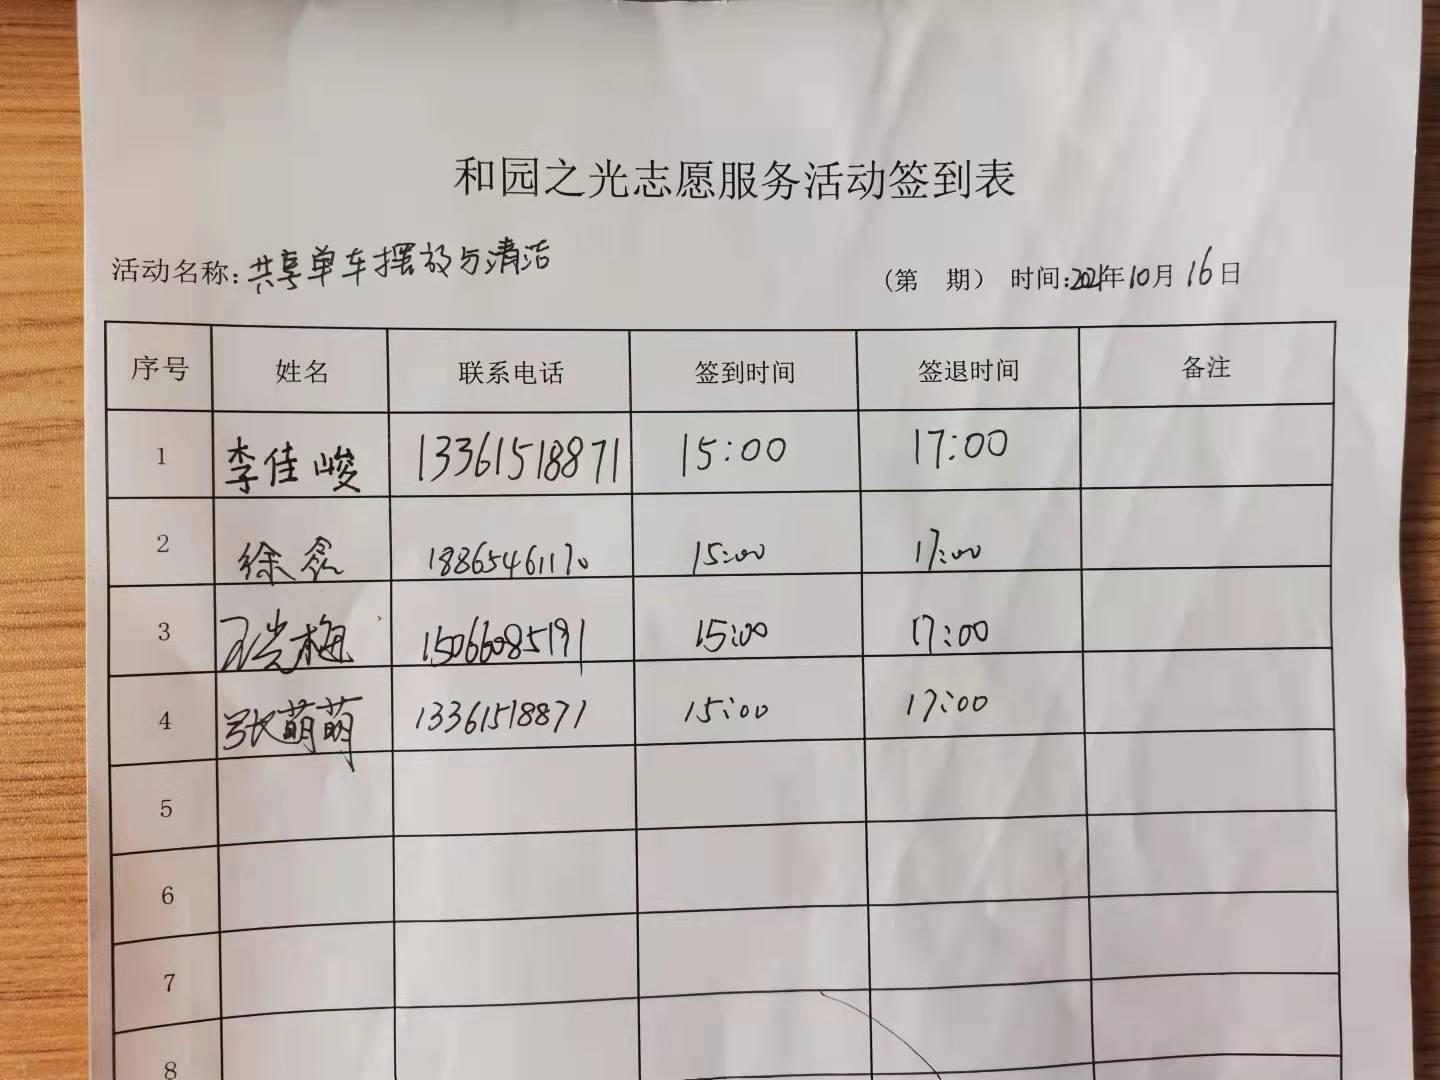 和园之光志愿服务活动签到表
活动名称:共享单车摆放与清洁 (第 期) 时间:2021年10月16日
序号 姓名 联系电话 签到时间 签退时间 备注
1 李佳峻 13361518871 15:00 17:00
2 徐 18865461170 15:00 17:00
3 梅 15066085191 15:00 17:00
4 张萌萌 13361518871 15:00 17:00
5
6
7
8